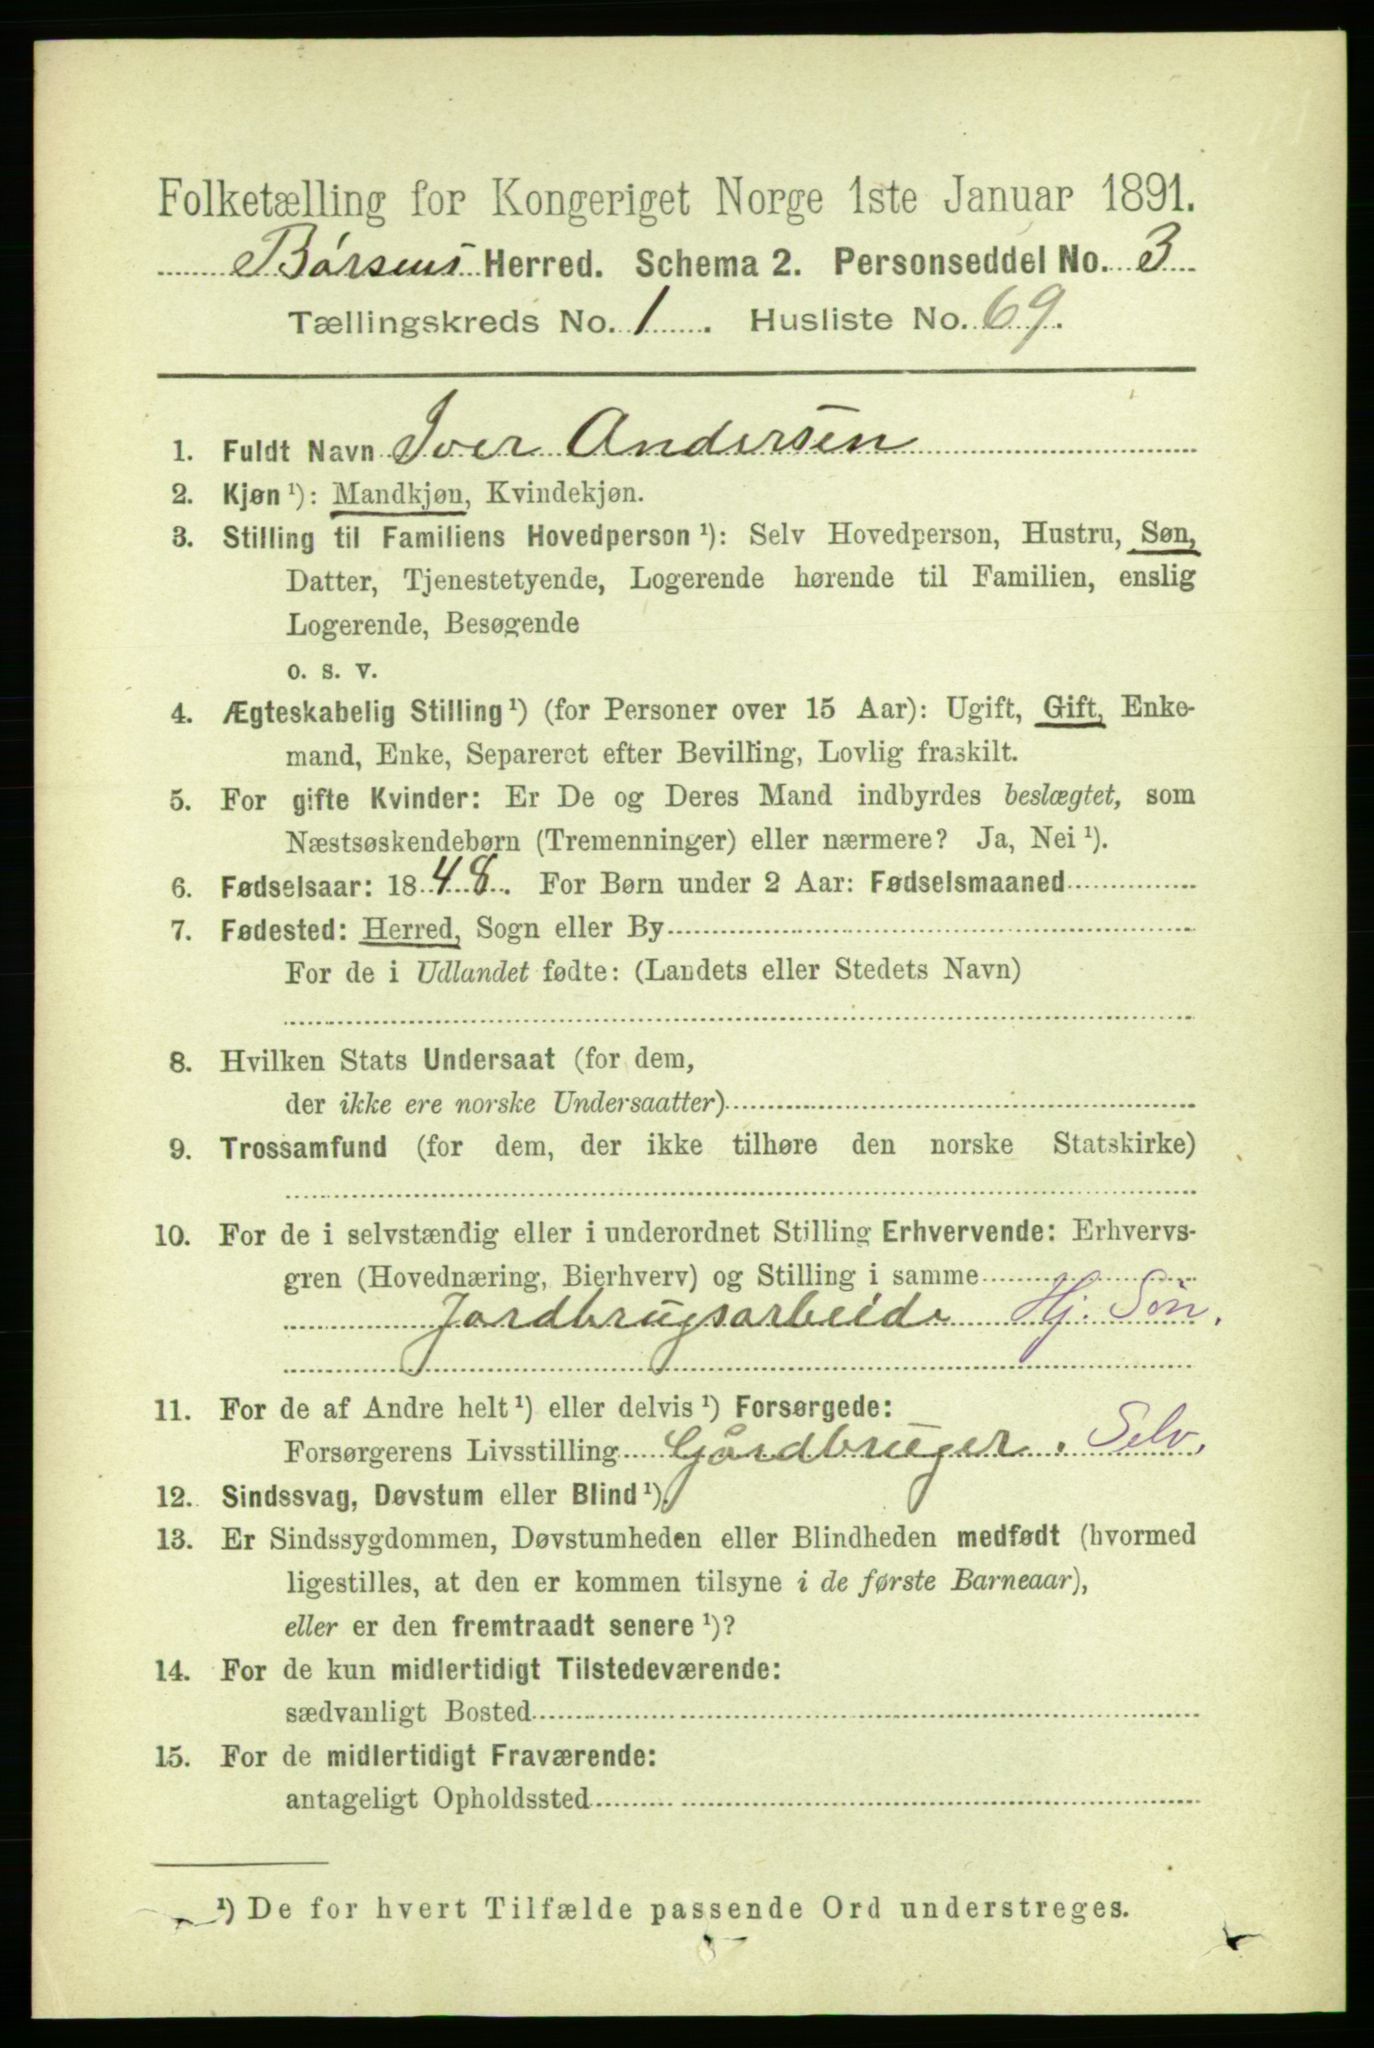 Folketælling for Kongeriget Norge 1ste Januar 1891.
Børsens Herred. Schema 2. Personseddel No. 3
Tællingskreds No. 1. Husliste No. 69.
1. Fuldt Navn Iver Andersen
2. Kjøn ¹): Mandkjøn, Kvindekjøn.
3. Stilling til Familiens Hovedperson ¹): Selv Hovedperson, Hustru, Søn,
Datter, Tjenestetyende, Logerende hørende til Familien, enslig
Logerende, Besøgende
o. s. v.
4. Ægteskabelig Stilling ¹) (for Personer over 15 Aar): Ugift, Gift, Enke-
mand, Enke, Separeret efter Bevilling, Lovlig fraskilt.
5. For gifte Kvinder: Er De og Deres Mand indbyrdes beslægtet, som
Næstsøskendebørn (Tremenninger) eller nærmere? Ja, Nei ¹).
6. Fødselsaar: 1848. For Børn under 2 Aar: Fødselsmaaned
7. Fødested: Herred, Sogn eller By
For de i Udlandet fødte: (Landets eller Stedets Navn)
8. Hvilken Stats Undersaat (for dem,
der ikke ere norske Undersaatter)
9. Trossamfund (for dem, der ikke tilhøre den norske Statskirke)
10. For de i selvstændig eller i underordnet Stilling Erhvervende: Erhvervs-
gren (Hovednæring, Bierhverv) og Stilling i samme
Jordbrugsarbeide Hj. Søn.
11. For de af Andre helt ¹) eller delvis ¹) Forsørgede:
Forsørgerens Livsstilling Gårdbruger. Selv.
12. Sindssvag, Døvstum eller Blind ¹).
13. Er Sindssygdommen, Døvstumheden eller Blindheden medfødt (hvormed
ligestilles, at den er kommen tilsyne i de første Barneaar),
eller er den fremtraadt senere ¹)?
14. For de kun midlertidigt Tilstedeværende:
sædvanligt Bosted
15. For de midlertidigt Fraværende:
antageligt Opholdssted
¹) De for hvert Tilfælde passende Ord understreges.